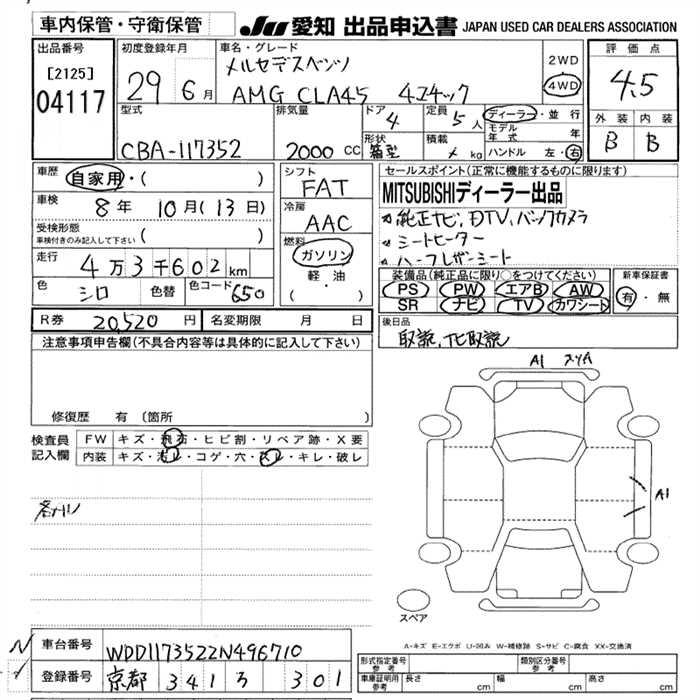 車内保管・守衛保管
JU 愛知 出品申込書 JAPAN USED CAR DEALERS ASSOCIATION
出品番号 [2125] 04117
初度登録年月 29 6月
車名・グレード メルセデスベンツ
AMG CLA45 4マチック
2WD
4WD
評価点 4.5
外装 B 内装 B
型式 CBA-117352
排気量 2000 CC
ドア 4
形状 箱型
定員 5人
積載 kg
ディーラー・並行
モデル年式 年
ハンドル 左・右
車歴 自家用・( )
車検 8年 10月(13日)
受検形態 車検付きのみ記入して下さい ( )
走行 4万3千602km
色 シロ 色替 色コード 650
シフト FAT
冷房 AAC
燃料 ガソリン
軽・油
( )
セールスポイント(正常に機能するものに限ります)
MITSUBISHIディーラー出品
純正ナビ、DTV、バックカメラ
シートヒーター
ハーフレザーシート
装備品(純正品に限り○をつけてください)
PS PW エアB AW
SR ナビ TV カワシート
新車保証書
有・無
R券 20,520円 名変期限 月 日
後日品
取説、ナビ取説
注意事項申告欄(不具合内容等は具体的に記入して下さい)
修復歴 有 (箇所 )
検査員記入欄
FW キズ・飛石・ヒビ割・リペア跡・X要
内装 キズ・汚レ・コゲ・穴・スレ・キレ・破レ
A1 スリA
A1
スペア
A-キズ E-エクボ U-凹み W-補修跡 S-サビ C-腐食 XX-交換済
車台番号 WDD1173522N496710
登録番号 京都 341 ろ 301
型式指定番号 参考 類別区分番号 参考
車庫証明用 参考 長さ cm 幅 cm 高さ cm